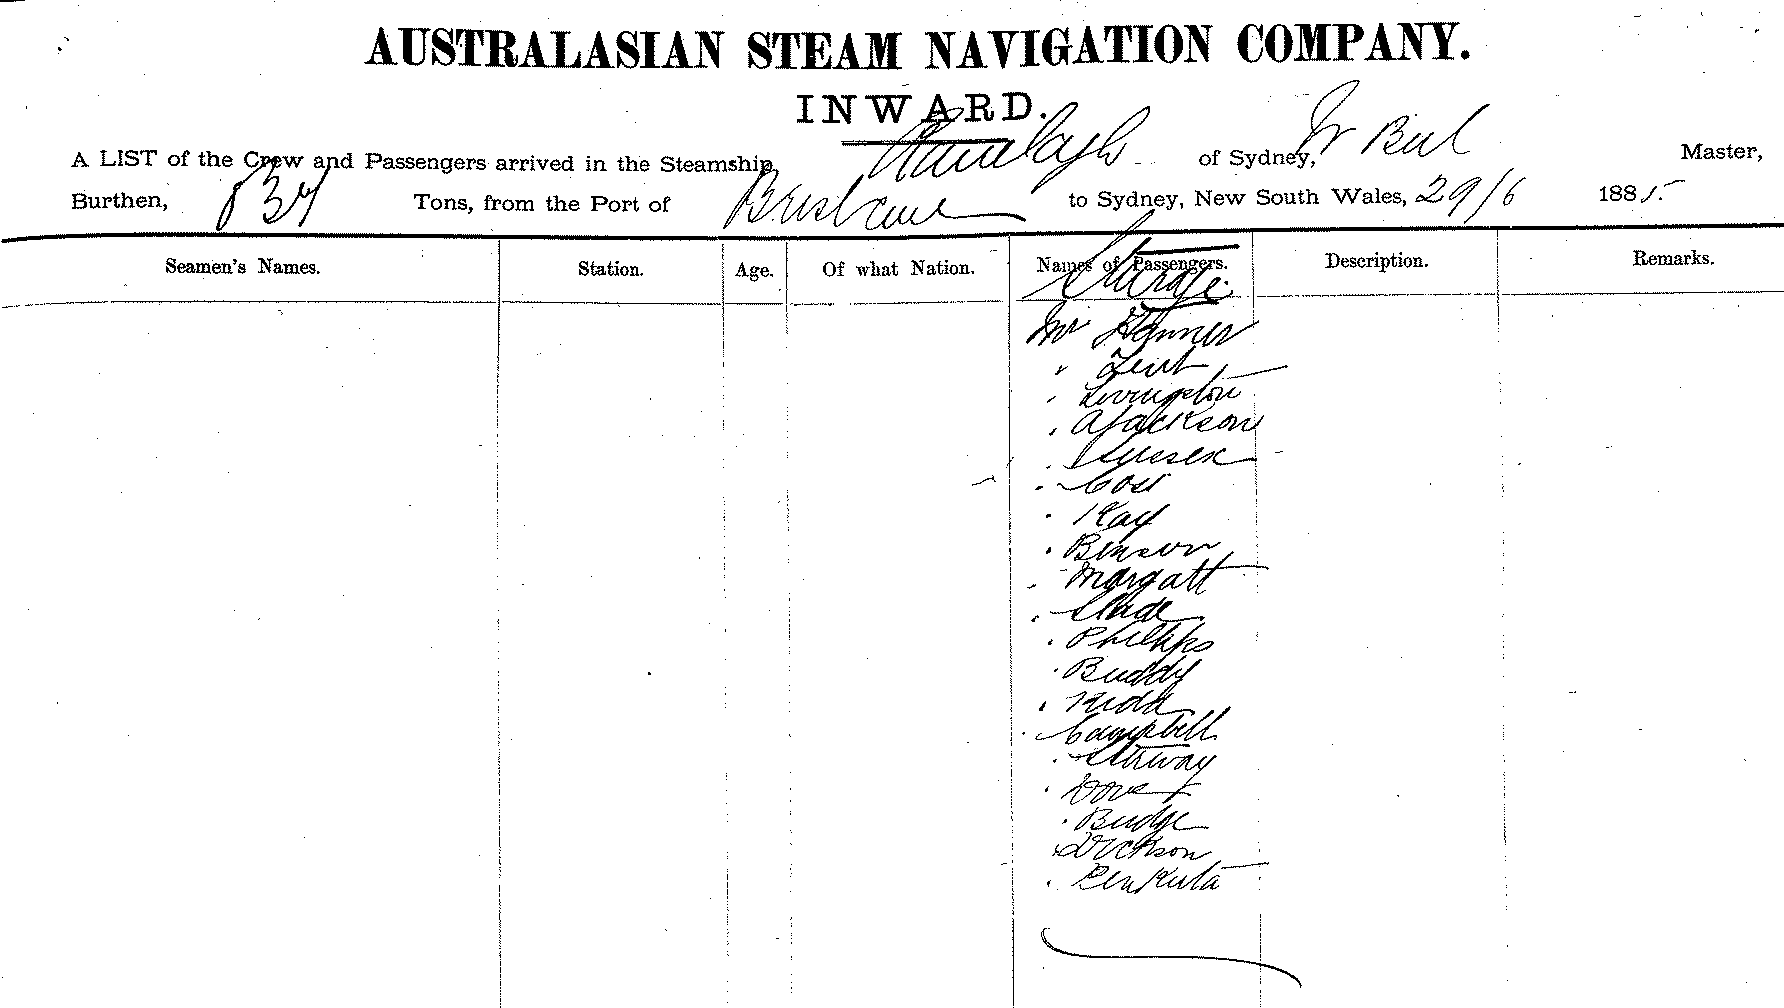 AUSTRALASIAN STEAM NAVIGATION COMPANY.
INWARD.
A LIST of the Crew and Passengers arrived in the Steamship Ranelagh of Sydney, Master,
Burthen, 837 Tons, from the Port of Brisbane to Sydney, New South Wales, 29/6 1885.
Seamen's Names. Station. Age. Of what Nation. Names of Passengers. Description. Remarks.
Steerage
Mr
" Livingston
" A Jackson
" Sussex
" Kay
" Benson
" Margatt
" Slade
" Phillips
" Buddy
" Kidd
" Campbell
" Stirway
" Budge
" Dickson